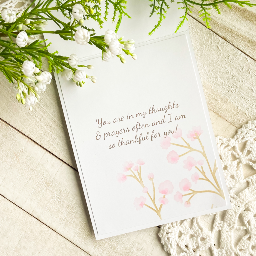 You are in my thoughts
& prayers often and I am
so thankful for you!